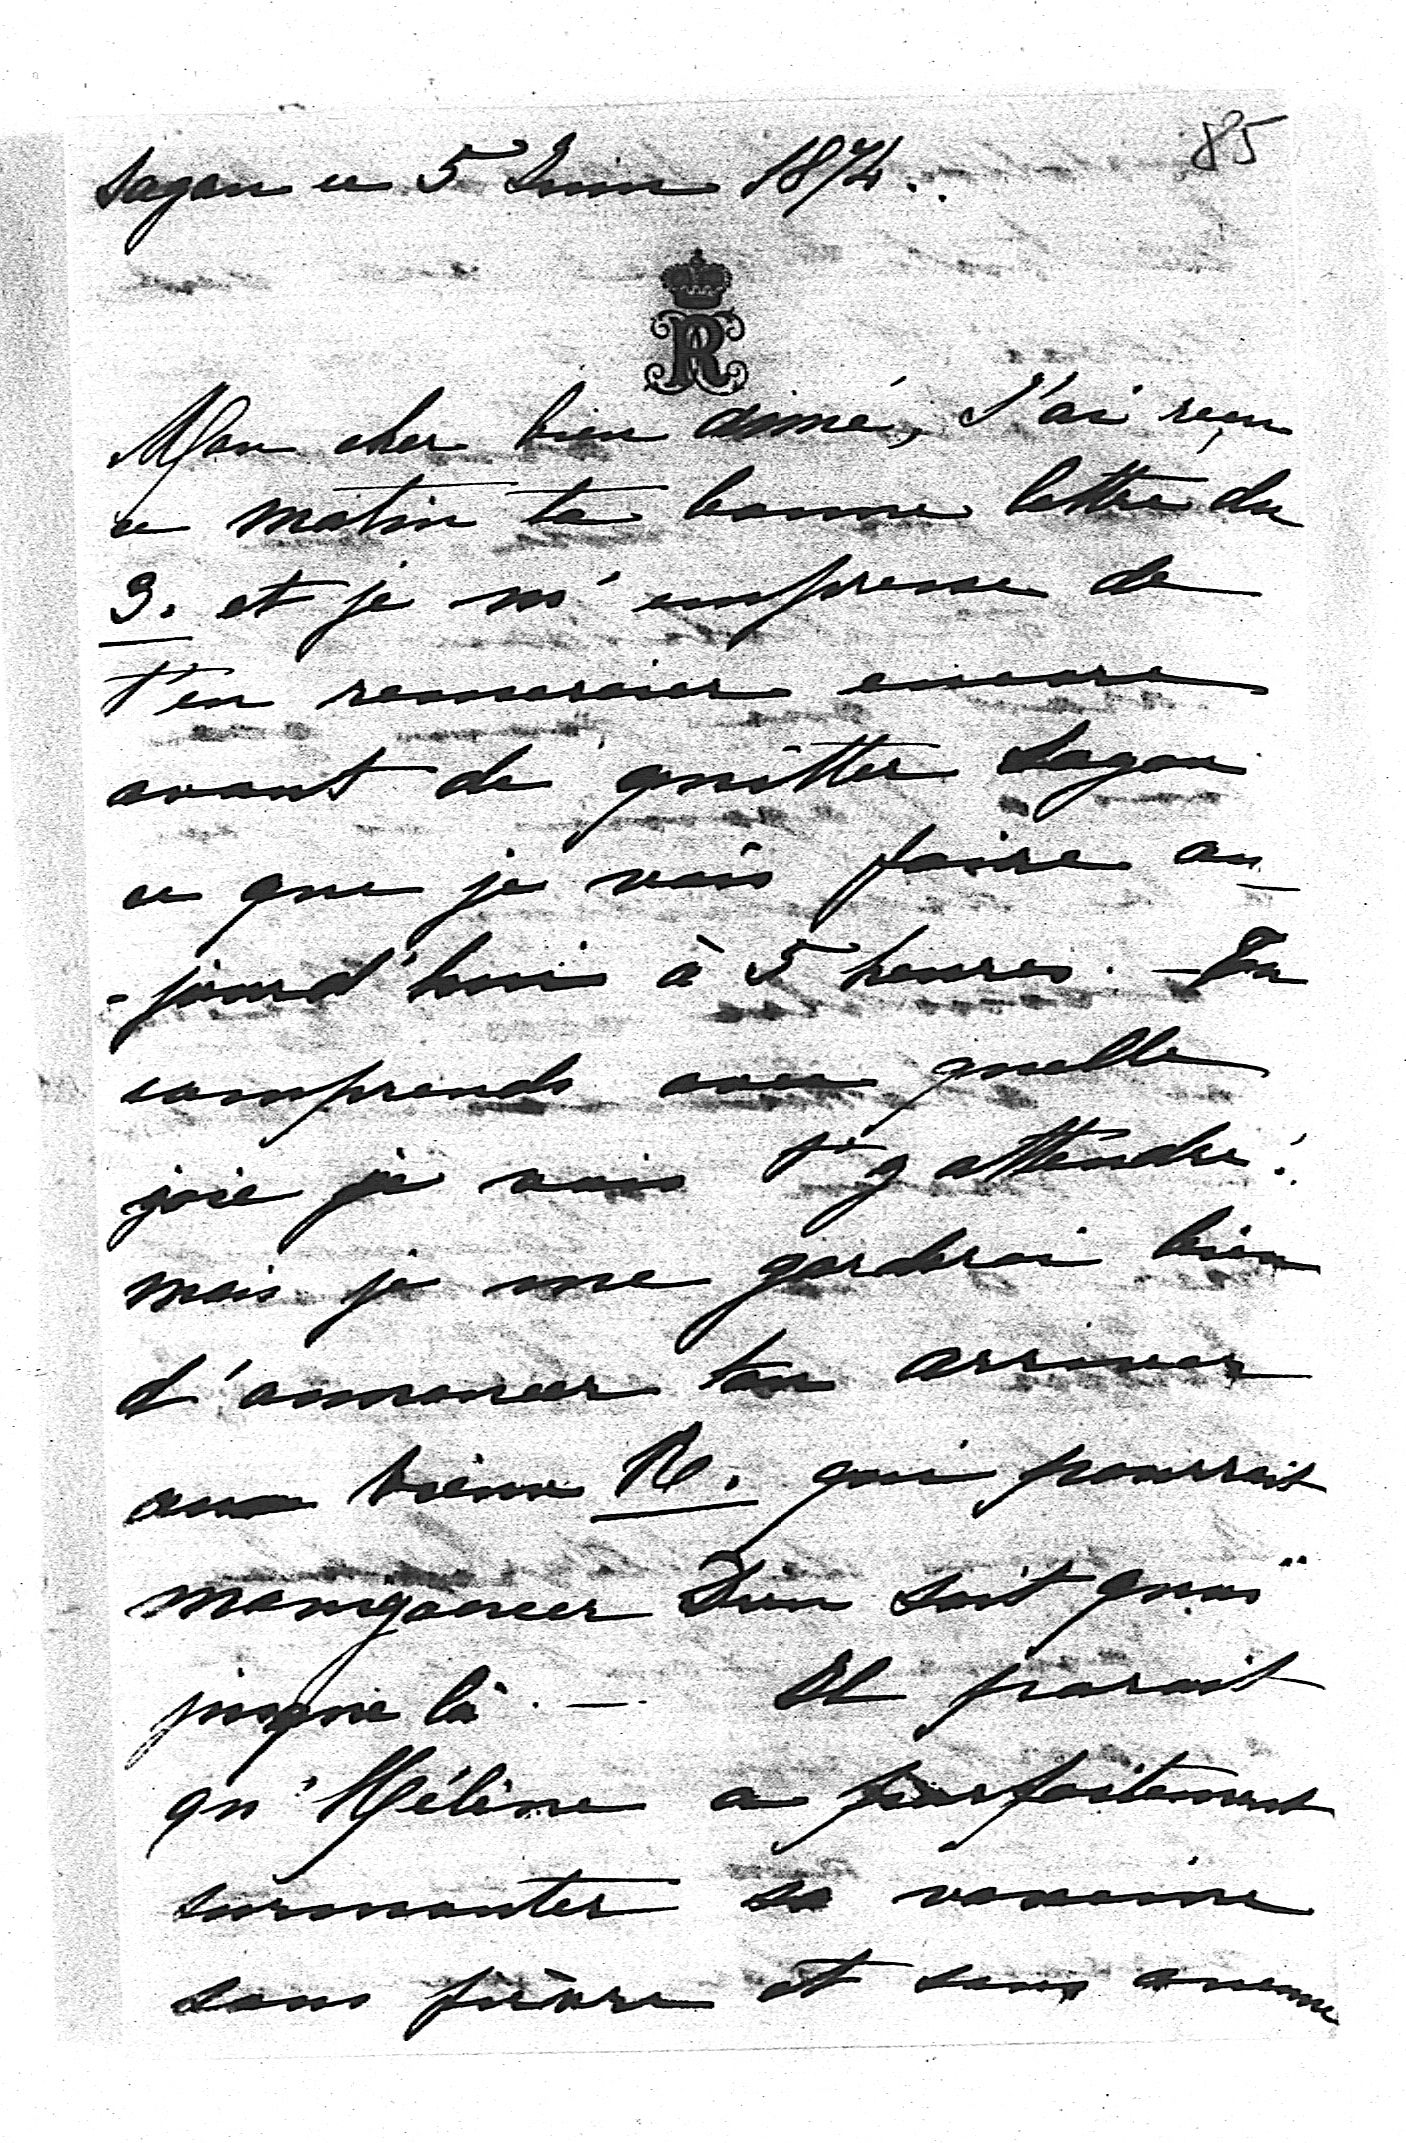 85
Sagan ce 5 Juin 1874.
R
Mon cher bien aimé, J'ai reçu
ce matin ta bonne lettre du
3. et je m'empresse de
t'en remercier encore
avant de quitter Sagan
ce que je vais faire au
-jourd'hui à 5 heures. - Tu
comprends avec quelle
joie je vais t'y attendre!
mais je me garderai bien
d'annoncer ton arrivée
aux vieux R. qui pourrait
manigancer Dieu sait quoi
jusque là. - Il parait
qu'Hélène a parfaitement
surmonter sa vaccine
sans fièvre et sans aucune